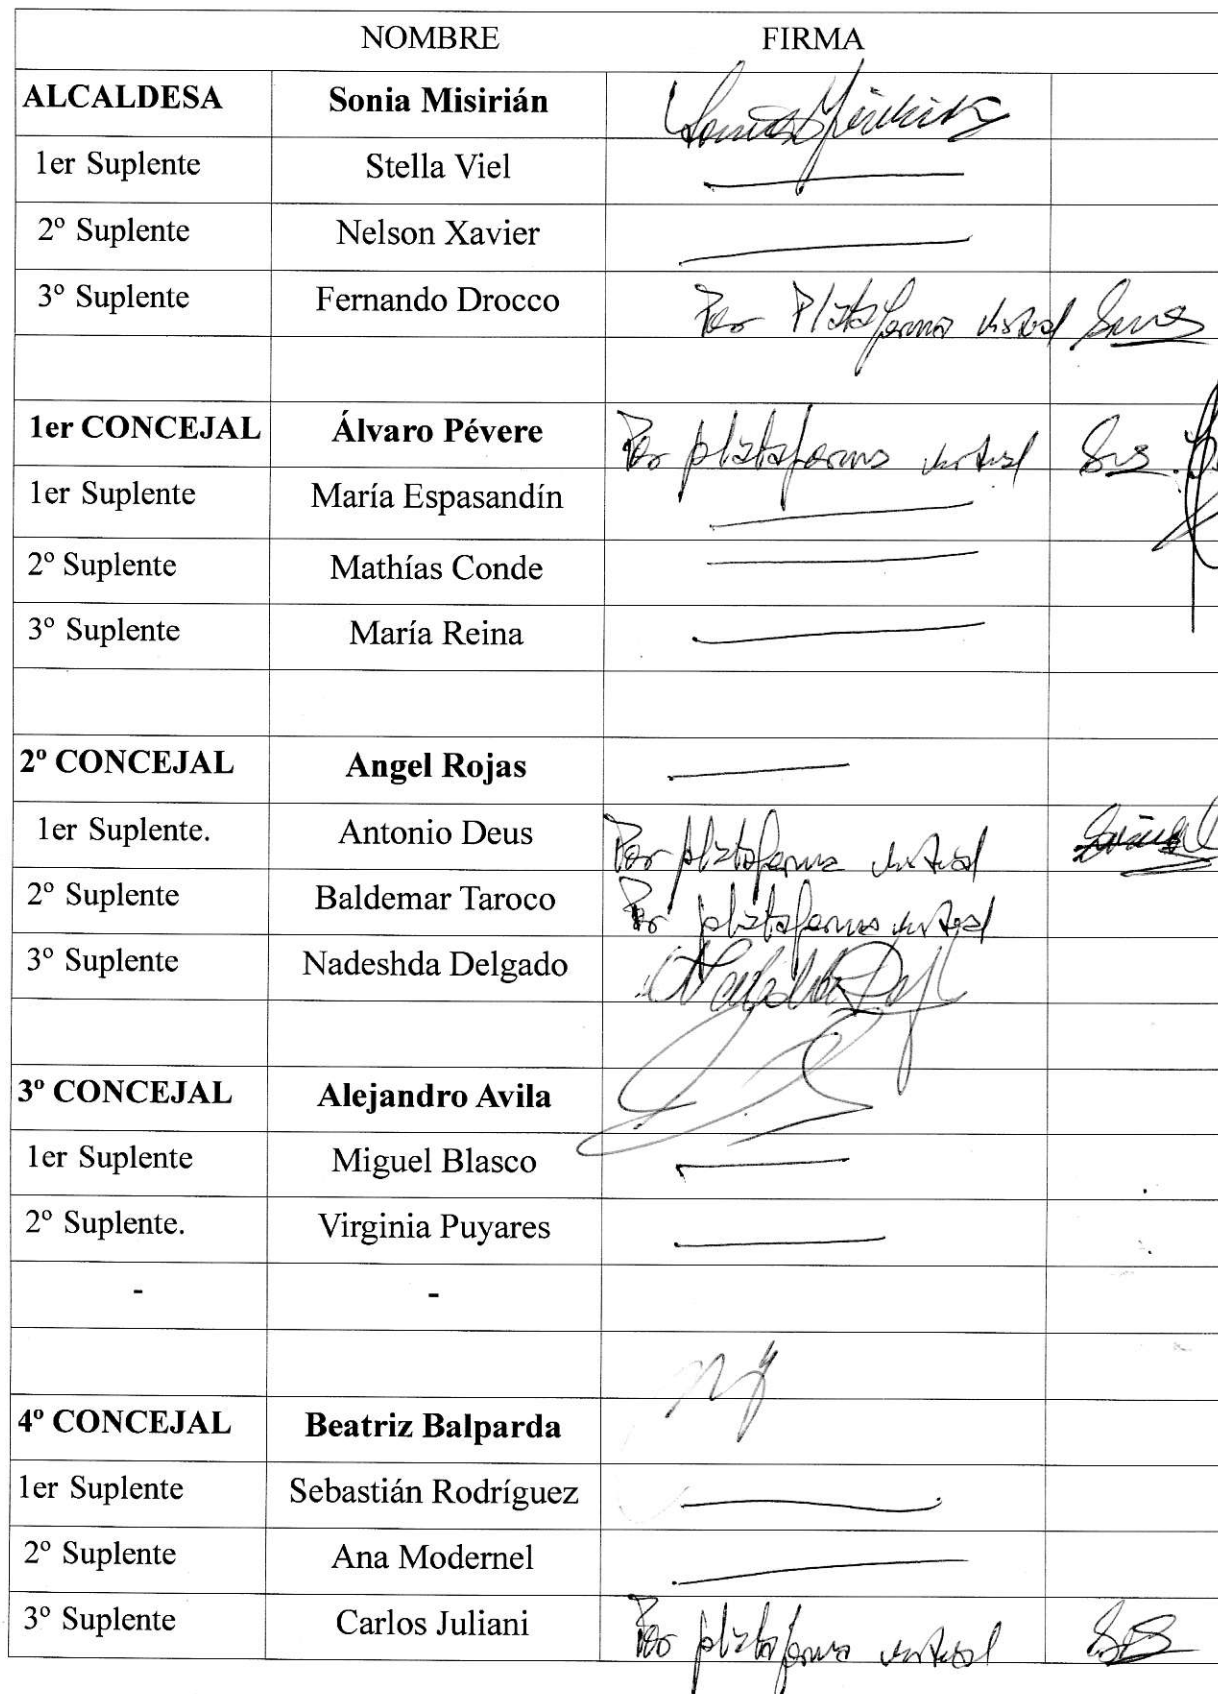 NOMBRE FIRMA
ALCALDESA Sonia Misirián
1er Suplente Stella Viel
2º Suplente Nelson Xavier
3º Suplente Fernando Drocco Por Plataforma virtual
1er CONCEJAL Álvaro Pévere Por plataforma virtual
1er Suplente María Espasandín
2º Suplente Mathías Conde
3º Suplente María Reina
2º CONCEJAL Angel Rojas
1er Suplente. Antonio Deus Por plataforma virtual
2º Suplente Baldemar Taroco Por plataforma virtual
3º Suplente Nadeshda Delgado
3º CONCEJAL Alejandro Avila
1er Suplente Miguel Blasco
2º Suplente. Virginia Puyares
- -
4º CONCEJAL Beatriz Balparda
1er Suplente Sebastián Rodríguez
2º Suplente Ana Modernel
3º Suplente Carlos Juliani Por plataforma virtual